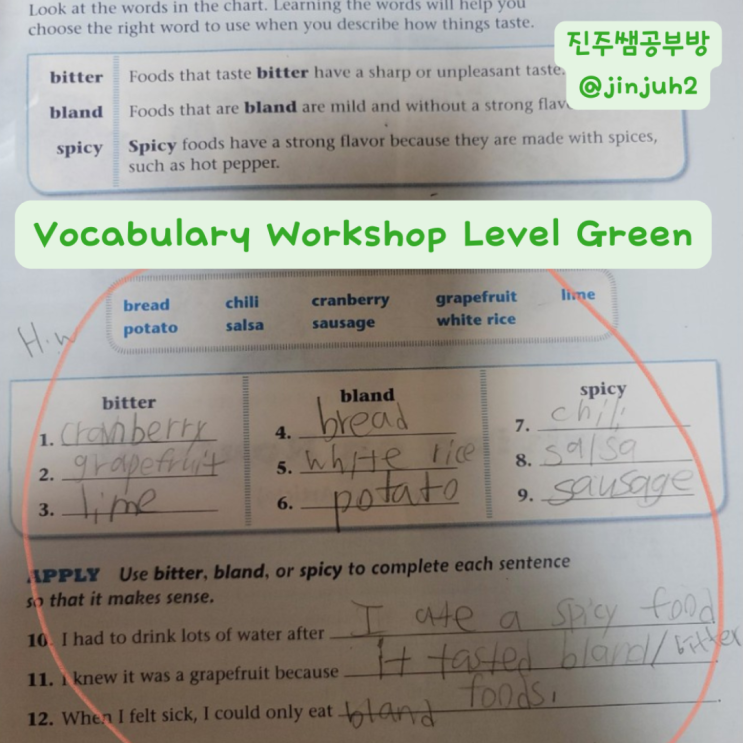 Look at the words in the chart. Learning the words will help you
choose the right word to use when you describe how things taste.
진주쌤공부방
@jinjuh2
bitter Foods that taste bitter have a sharp or unpleasant taste.
bland Foods that are bland are mild and without a strong flav
spicy Spicy foods have a strong flavor because they are made with spices,
such as hot pepper.
Vocabulary Workshop Level Green
bread chili cranberry grapefruit lime
potato salsa sausage white rice
H.w
bitter bland spicy
1. cranberry 4. bread 7. chili
2. grapefruit 5. white rice 8. salsa
3. lime 6. potato 9. sausage
APPLY Use bitter, bland, or spicy to complete each sentence
so that it makes sense.
10. I had to drink lots of water after I ate a spicy food
11. I knew it was a grapefruit because it tasted bland/bitter
12. When I felt sick, I could only eat bland foods.